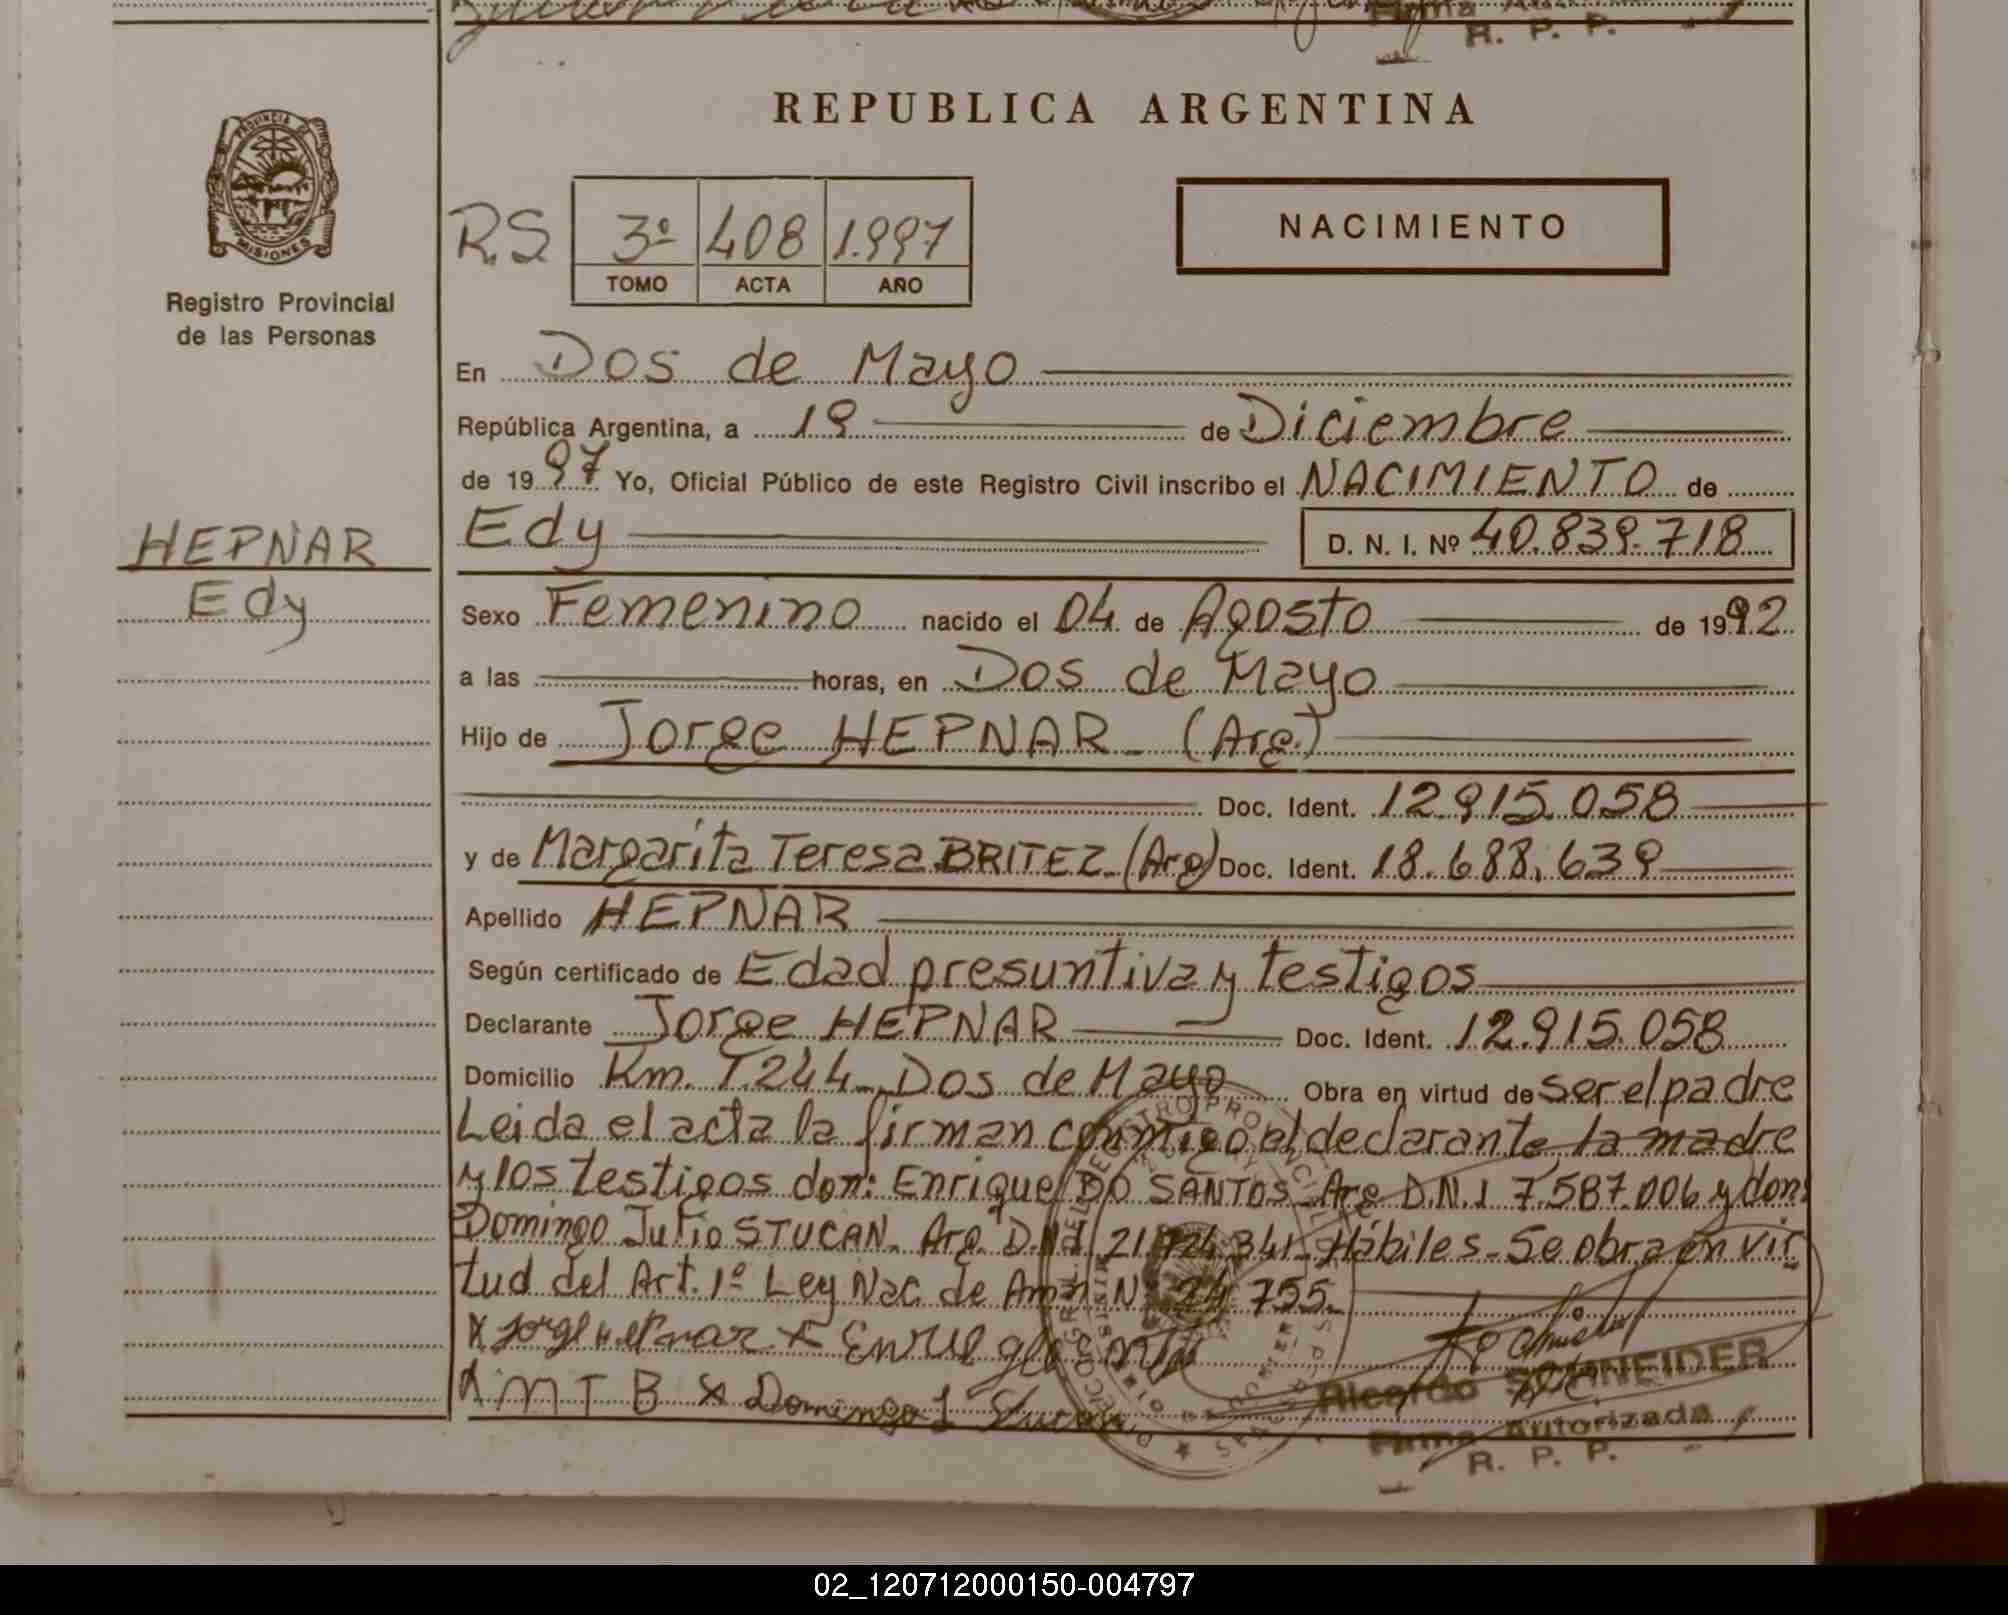 Firma
R. P. P.
PROVINCIA DE
MISIONES
Registro Provincial
de las Personas
REPUBLICA ARGENTINA
R.S 3º 408 1.997
TOMO ACTA AÑO
NACIMIENTO
En Dos de Mayo
República Argentina, a 19 de Diciembre
de 1997 Yo, Oficial Público de este Registro Civil inscribo el NACIMIENTO de
HEPNAR
Edy
Edy D. N. I. Nº 40.839.718
Sexo Femenino nacido el 04 de Agosto de 1992
a las horas, en Dos de Mayo
Hijo de Jorge HEPNAR - (Arg.)
Doc. Ident. 12.915.058
y de Margarita Teresa BRITEZ - (Arg) Doc. Ident. 18.688.639
Apellido HEPNAR
Según certificado de Edad presuntiva y testigos
Declarante Jorge HEPNAR Doc. Ident. 12.915.058
Domicilio Km. 1244 - Dos de Mayo Obra en virtud de ser el padre
Leida el acta la firman conmigo el declarante, la madre
y los testigos don: Enrique DO SANTOS - Arg D.N.I 7.587.006 y don:
Domingo Julio STUCAN - Arg D.N.I 341 - Hábiles - Se obra en vir
tud del Art. 1º Ley Nac. de Amn. Nº 24.755 -
x Jorge Hepnar x
x M T B x Domingo J Stucan
Ricardo SCHNEIDER
Firma Autorizada
R. P. P.
02_120712000150-004797